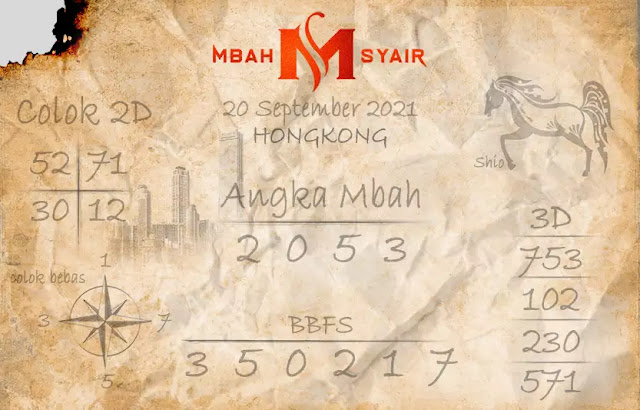 MBAH M SYAIR
Colok 2D
52 71
30 12
20 September 2021
HONGKONG
Shio
Angka Mbah
2 0 5 3
3D
753
102
230
571
colok bebas
1
3 7
5
BBFS
3 5 0 2 1 7